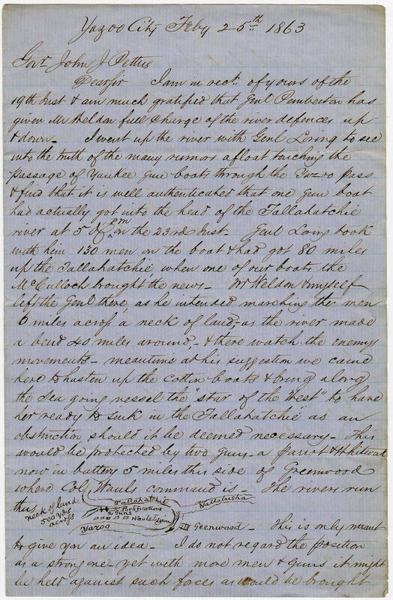 Yazoo City Feby 25th 1863
Govr John J Pettus
Dear sir I am in rect of yours of the
19th Inst & am much gratified that Genl Pemberton has
given Mr Weldon full Charge of the river defences up
& down. I went up the river with Genl Loring to see
into the truth of the many rumors afloat touching the
passage of Yankee Gun boats through the Yazoo pass
& find that it is well authenticated that one Gun boat
had actually got into the head of the Tallahatchie
river at 5 on the 23rd Inst. Genl Loring took
with him 130 men in the boat & had got 80 miles
up the Tallahatchie, when one of our boats the
McCulloch brought the news. Mr Weldon & myself
left the Genl there as he intended marching the men
6 miles across a neck of land, as the river made
a bend 40 miles around. & there watch the enemy
movements. meantime at his suggestion we came
here to hasten up the cotton boats & bring along
the Sea going vessel the Star of the West to have
her ready to sink in the Tallahatchie as an
obstruction should it be deemed necessary. This
would be protected by two Guns a parrot & Whitworth
now in battery 5 miles this side of Greenwood
where Col Wauls command is. The rivers run
thus
neck of land
500 yds
across
Tallahatchie
Yazoo
Yallabusha
Greenwood. This is only meant
to give you an idea. I do not regard the position
as a strong one. yet with more men & guns it might
be held against such forces as would be brought